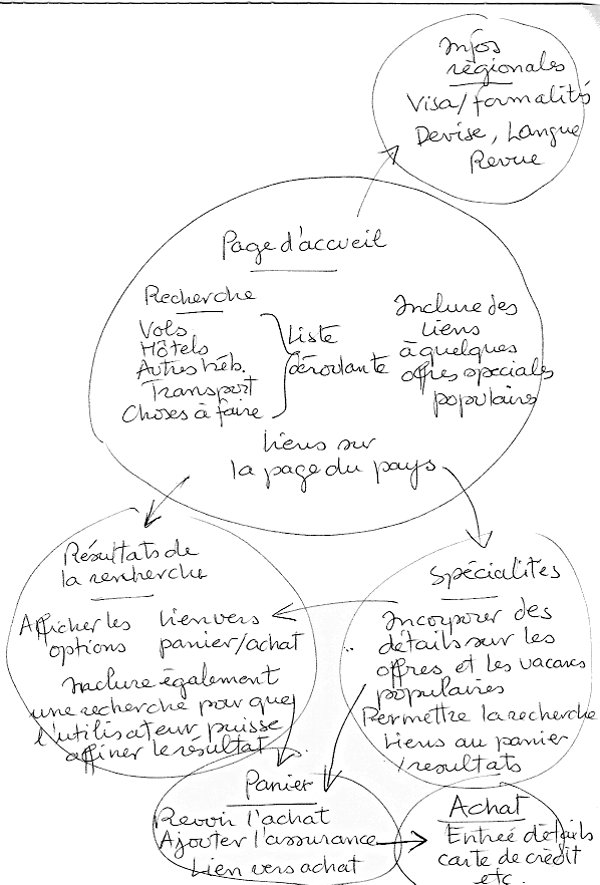 Infos
régionales
Visa/formalités
Devise, Langue
Revue
Page d'accueil
Recherche
Vols
Hôtels
Autres héb.
Transport
Choses à faire
Liste
déroulante
Inclure des
liens
à quelques
offres speciales
populaires
liens sur
la page du pays
Résultats de
la recherche
Afficher les
options
lien vers
panier/achat
Inclure également
une recherche pour que
l'utilisateur puisse
affiner le résultat
Spécialités
Incorporer des
détails sur les
offres et les vacances
populaires
Permettre la recherche
Liens au panier
/resultats
Panier
Revoir l'achat
Ajouter l'assurance
Lien vers achat
Achat
Entreé détails
carte de crèdit
etc.